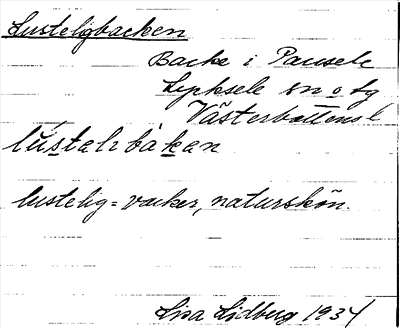 Lusteligbacken
Backe i Pausele
Lycksele sn o tg
Västerbottens l
lùstalιbàkan
lustelig = vacker, naturskön.
Lisa Lidberg 1934